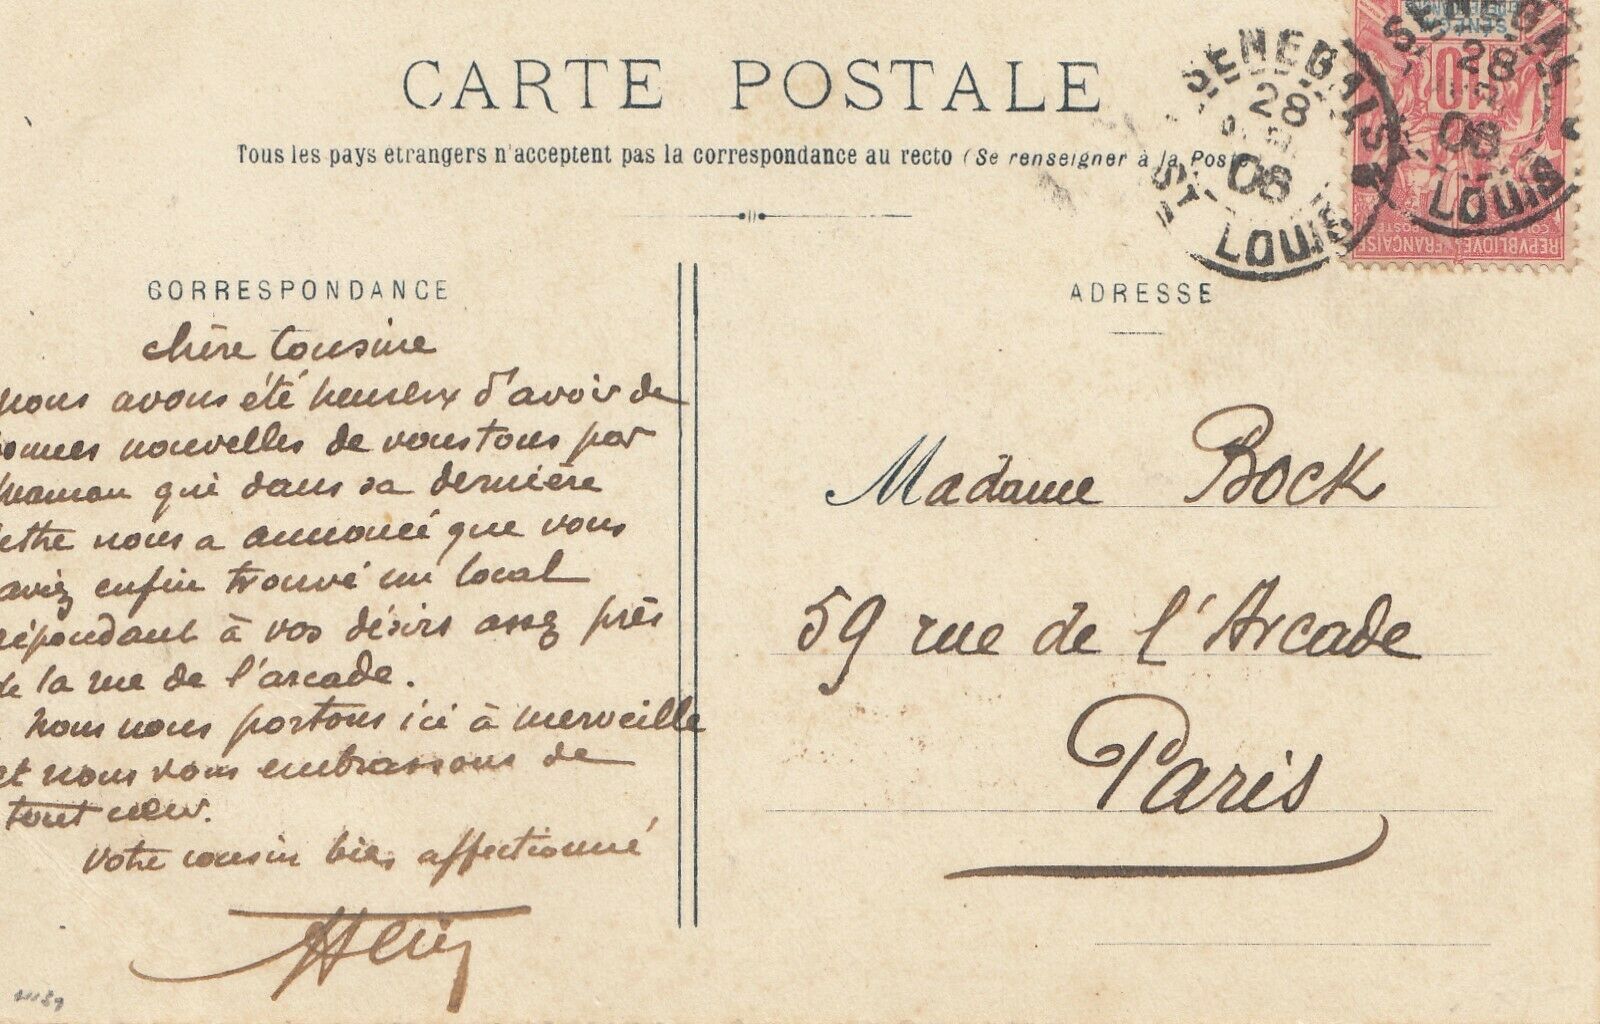 CARTE POSTALE
Tous les pays etrangers n'acceptent pas la correspondance au recto (Se renseigner à la Poste
SENEGAL
28
08
ST LOUIS
SENEGAL
28
08
LOUIS
10
REPVBLIQVE FRANÇAISE
CORRESPONDANCE
chère Cousine
nous avons été heureux d'avoir de
bonnes nouvelles de vous tous par
maman qui dans sa dernière
lettre nous a annoncé que vous
aviez enfin trouvé un local
répondant à vos désirs assez près
de la rue de l'arcade.
nous nous portons ici à merveille
et nous vous embrassons de
tout cœur.
votre cousin bien affectionné
ADRESSE
Madame Bock
59 rue de l'Arcade
Paris